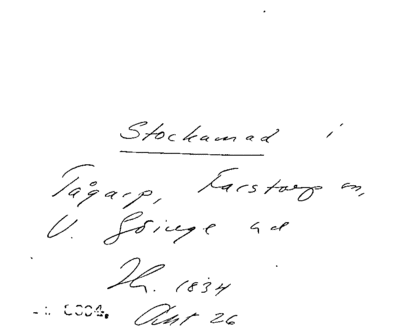 Stockamad i
Tågarp, Farstorp sn,
V. Göinge hd
Th. 1834
Akt 26